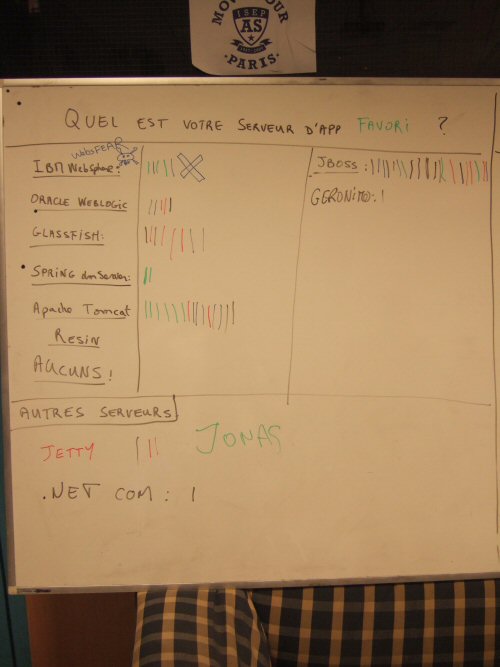 ISEP
AS
PARIS
QUEL EST VOTRE SERVEUR D'APP FAVORI ?
WebsFEAR
IBM WebSphere:
ORACLE WEBLOGIC
GLASSFISH:
SPRING dm Server:
Apache Tomcat
RESIN
AUCUNS!
JBOSS :
GERONIMO: I
AUTRES SERVEURS
JETTY III
JONAS
.NET COM : I